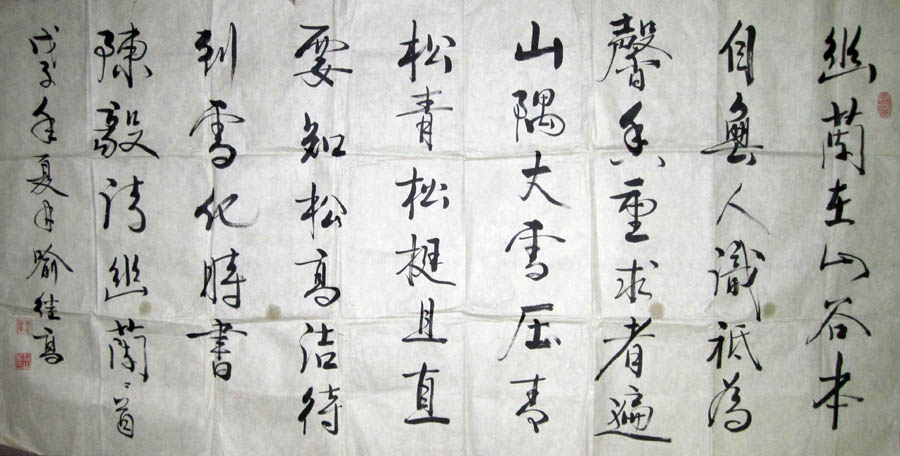 幽蘭在山谷本
自無人識祗為
馨香重求者遍
山隅大雪压青
松青松挺且直
要知松高洁待
到雪化時書
陳毅诗幽蘭一首
戊子年夏月喻继高